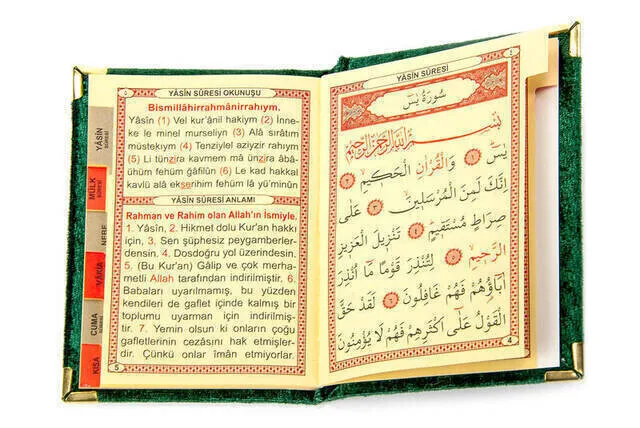 YÂSÎN SÛRESİ
سُورَةُ يٰسٓ
بِسْمِ اللّٰهِ الرَّحْمٰنِ الرَّحِيمِ
يٰسٓ ﴿١﴾ وَالْقُرْاٰنِ الْحَكِيمِ ﴿٢﴾
اِنَّكَ لَمِنَ الْمُرْسَلِينَ ﴿٣﴾ عَلٰى
صِرَاطٍ مُسْتَقِيمٍ ﴿٤﴾ تَنْزِيلَ الْعَزِيزِ
الرَّحِيمِ ﴿٥﴾ لِتُنْذِرَ قَوْمًا مَٓا اُنْذِرَ
اٰبَٓاؤُ۬هُمْ فَهُمْ غَافِلُونَ ﴿٦﴾ لَقَدْ حَقَّ
الْقَوْلُ عَلٰٓى اَكْثَرِهِمْ فَهُمْ لَا يُؤْمِنُونَ
4
YÂSİN SÛRESİ OKUNUŞU
Bismillâhirrahmânirrahıym.
Yâsîn (1) Vel kur'ânil hakiym (2) İnne-
ke le minel murseliyn (3) Alâ sırâtim
müstekiym (4) Tenziylel aziyzir rahıym
(5) Li tünzira kavmem mâ ünzira âbâ-
ühüm fehüm ğâfilûn (6) Le kad hakkal
kavlü alâ ekserihim fehüm lâ yü'minûn
YÂSİN SÛRESİ ANLAMI
Rahman ve Rahim olan Allah'ın İsmiyle.
1. Yâsîn, 2. Hikmet dolu Kur'an hakkı
için, 3. Sen şüphesiz peygamberler-
densin. 4. Dosdoğru yol üzerindesin.
5. (Bu Kur'an) Gâlip ve çok merha-
metli Allah tarafından indirilmiştir. 6.
Babaları uyarılmamış, bu yüzden
kendileri de gaflet içinde kalmış bir
toplumu uyarman için indirilmiş-
tir. 7. Yemin olsun ki onların çoğu
gafletlerinin cezasını hak etmişler-
dir. Çünkü onlar îmân etmiyorlar.
5
YÂSİN
SÛRESİ
MÜLK
SÛRESİ
NEBE
CUMA
KISA